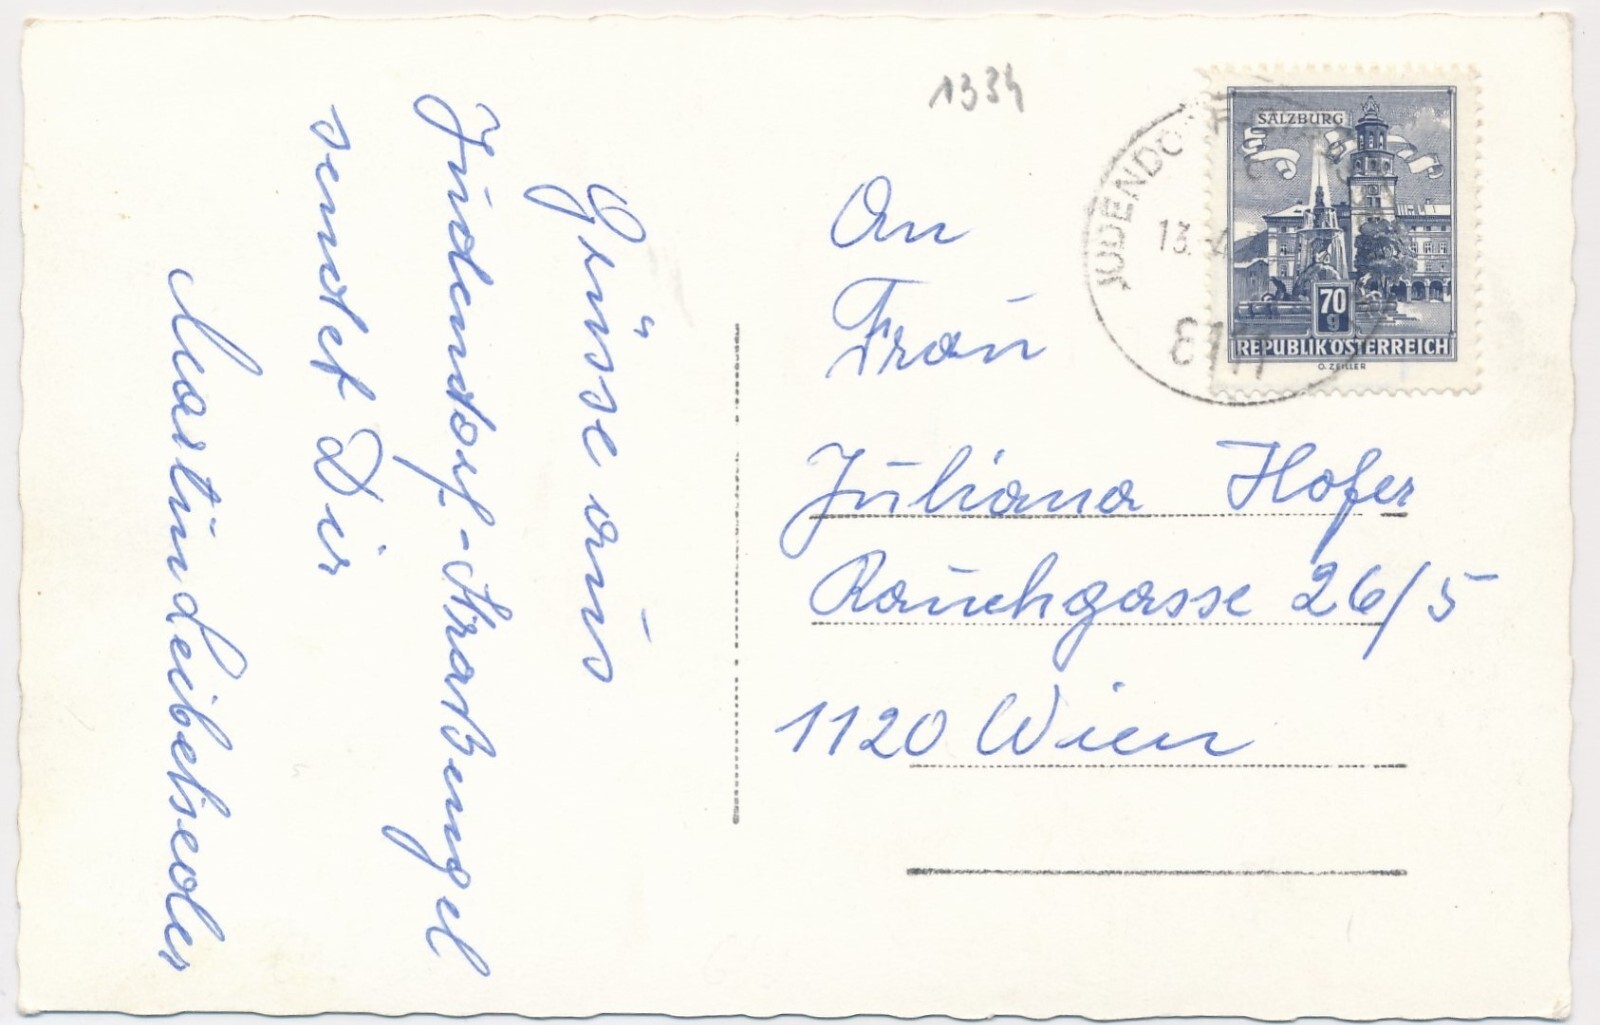 Grüsse aus
Judendorf-Straßengel
sendet Dir
Martin Leibetseder
1334
An
Frau
Juliana Hofer
Rauchgasse 26/5
1120 Wien
JUDENDO
13. 4
SALZBURG
70
g
REPUBLIK ÖSTERREICH
O. ZEILLER